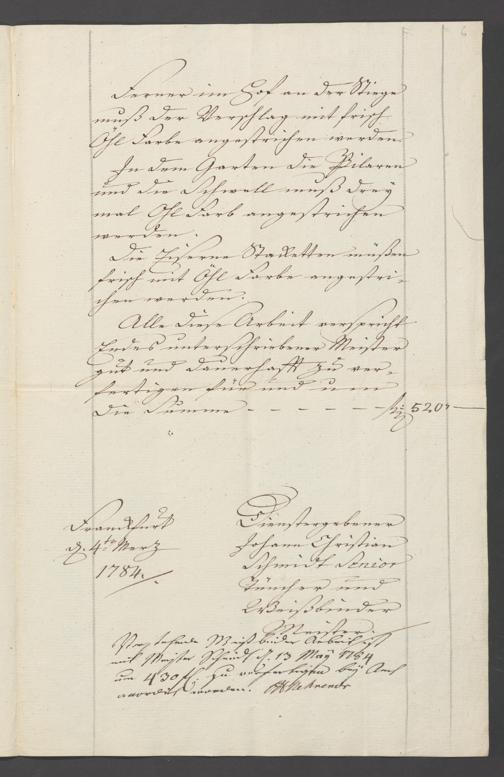 6
Ferner im Hof an der Stiege
muß der Verschlag mit frisch
Öhl Farbe angestrichen werden
In dem Garten die Pilaren
und die Schwell muß drey
mal Öhl Farb angestrichen
werden.
Die Eiserne Stacketten müßen
frisch mit Öhl Farbe angestri-
chen werden.
Alle diese Arbeit verspricht
Endes unterschriebener Meister
gut und dauerhafft zu ver-
fertigen für und um
die Summe - - - - - - 520
Franckfurt
d. 4ten Merz
1784.
Dienstergebener
Johann Christian
Schmidt Senior
Tüncher und
Weißbinder
Meister
Vorstehende Weißbinder Arbeit ist
mit Meister Schmidt d. 13 May 1784
um 430 f. zu verfertigen
worden.